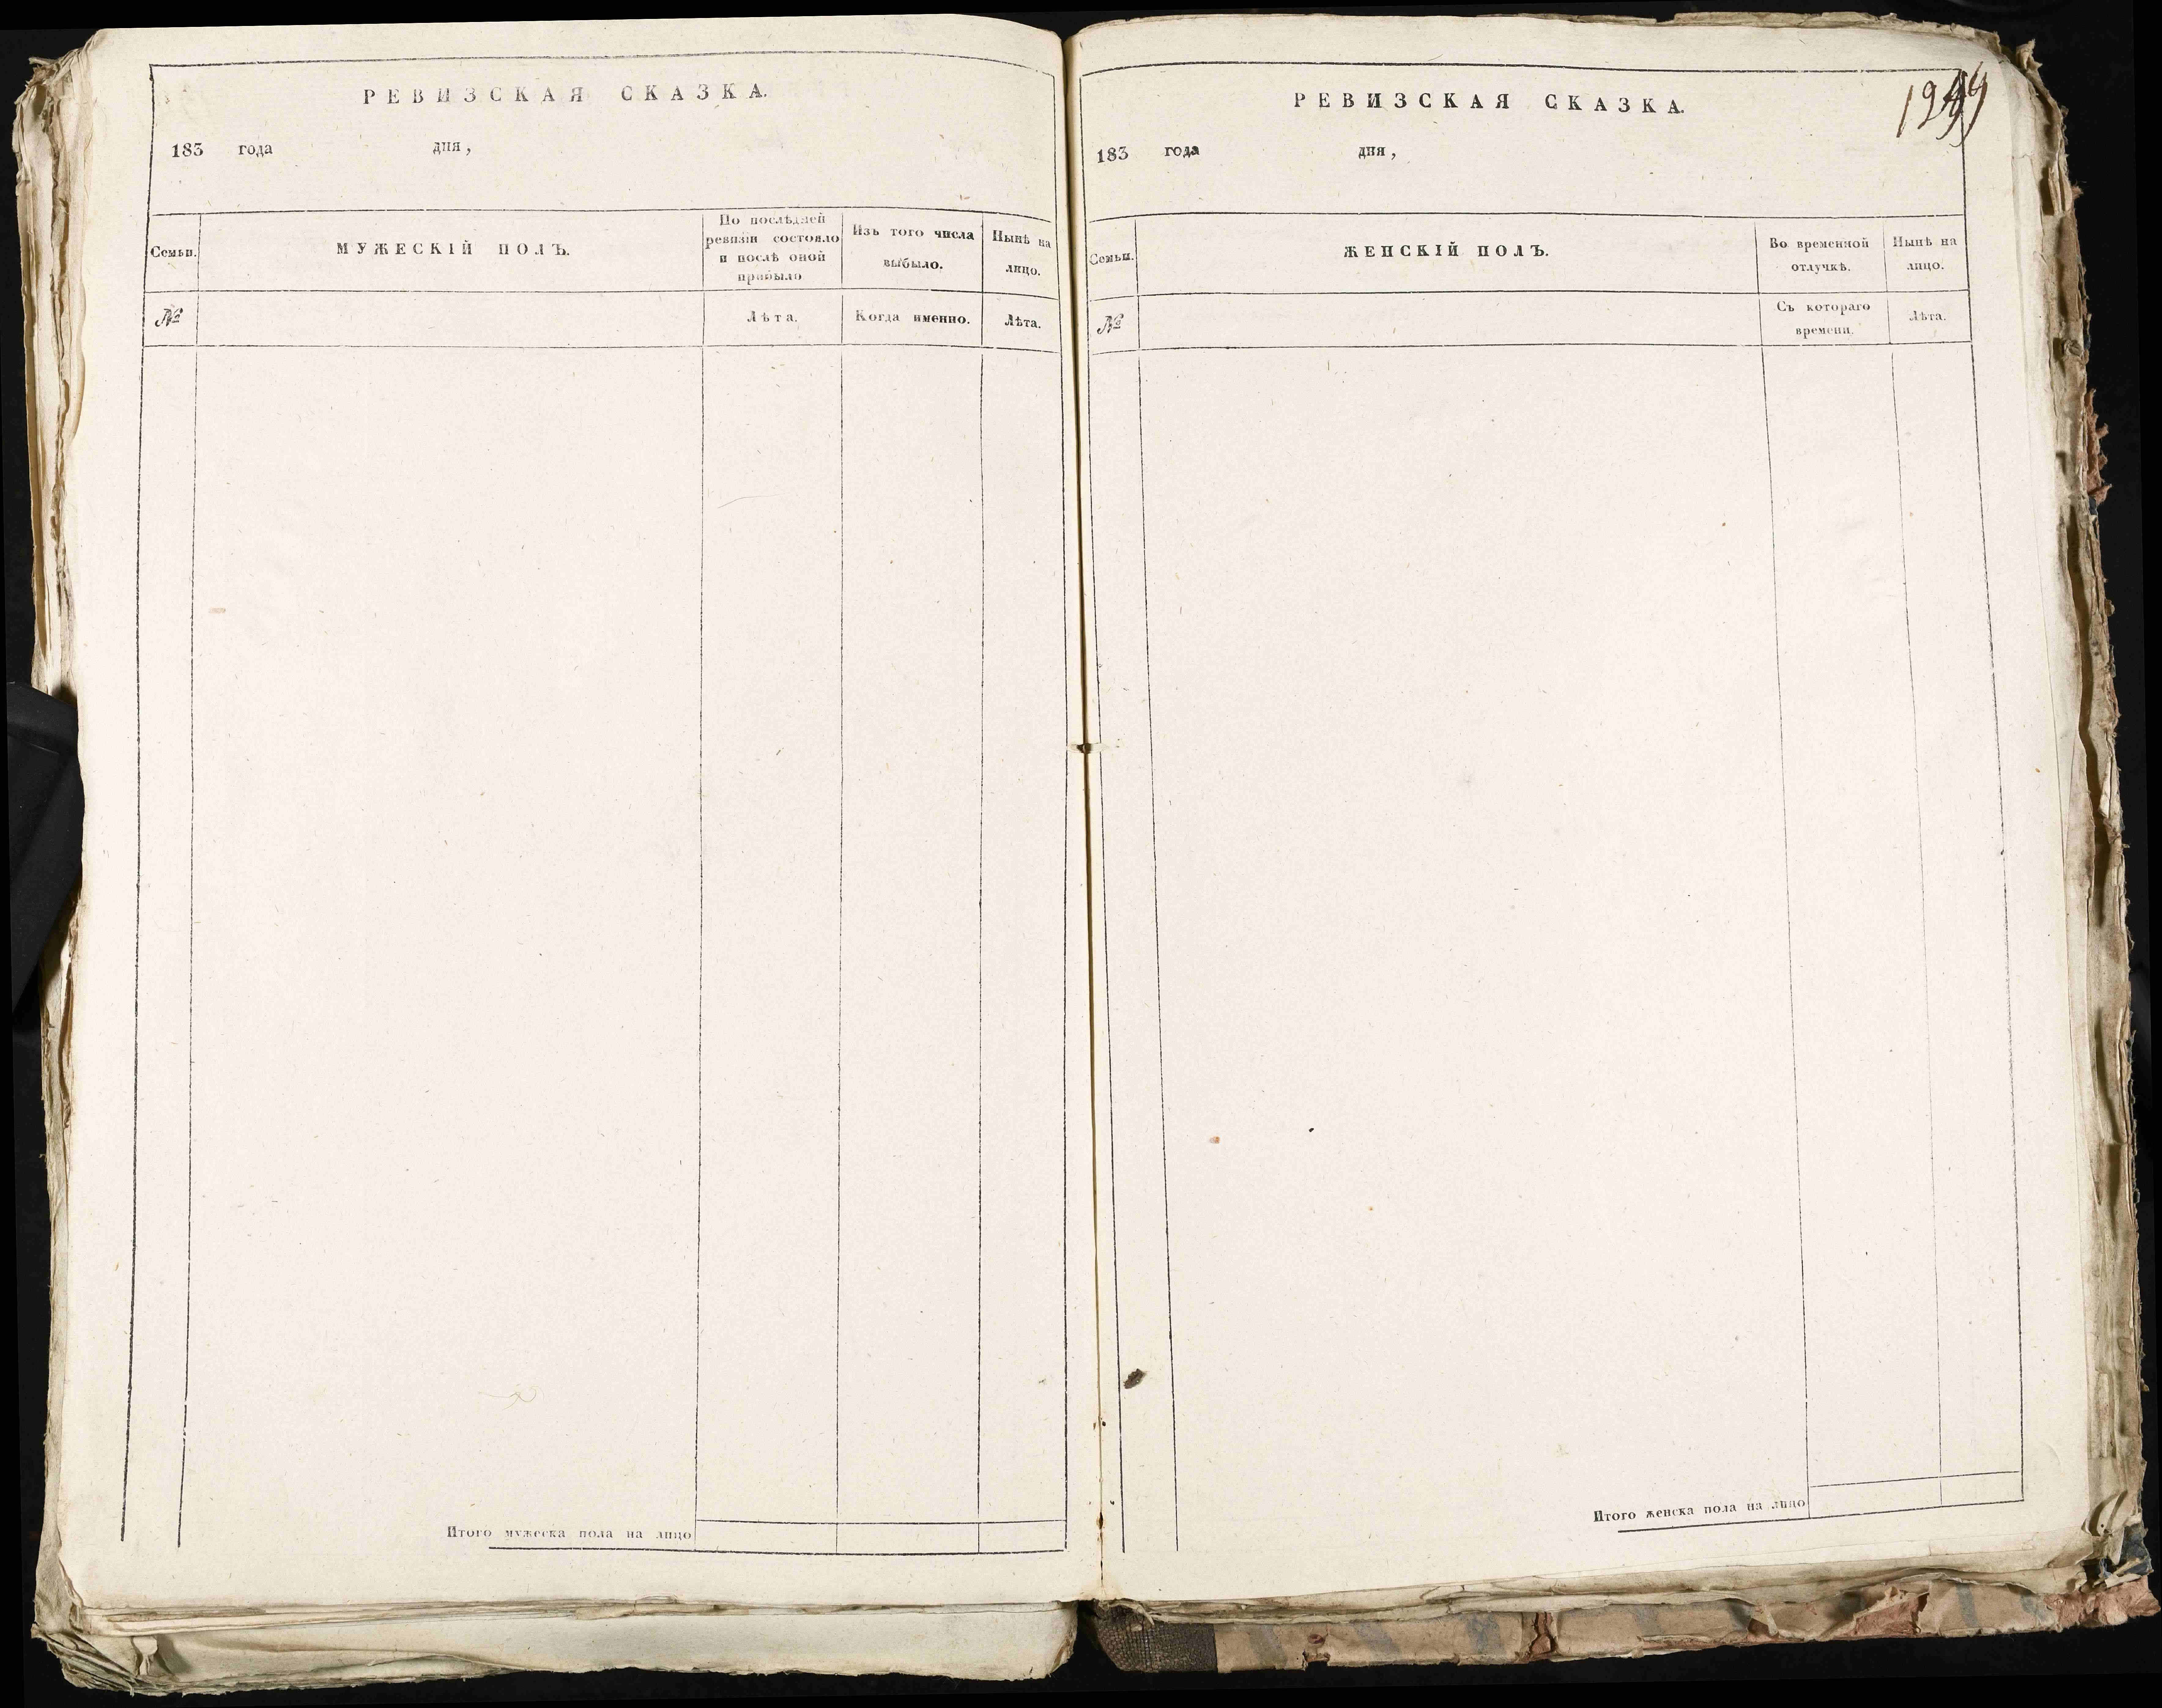 РЕВИЗСКАЯ СКАЗКА.
183 года дня,
Семьи.
МУЖЕСКІЙ ПОЛЪ.
По послѣдней
ревизіи состояло
и послѣ оной
прибыло
Изъ того числа
выбыло.
Нынѣ на
лицо.
№
Лѣта.
Когда именно.
Лѣта.
Итого мужеска пола на лицо
РЕВИЗСКАЯ СКАЗКА.
183 года дня,
Семьи.
ЖЕНСКІЙ ПОЛЪ.
Во временной
отлучкѣ.
Нынѣ на
лицо.
№
Съ котораго
времени.
Лѣта.
Итого женска пола на лицо